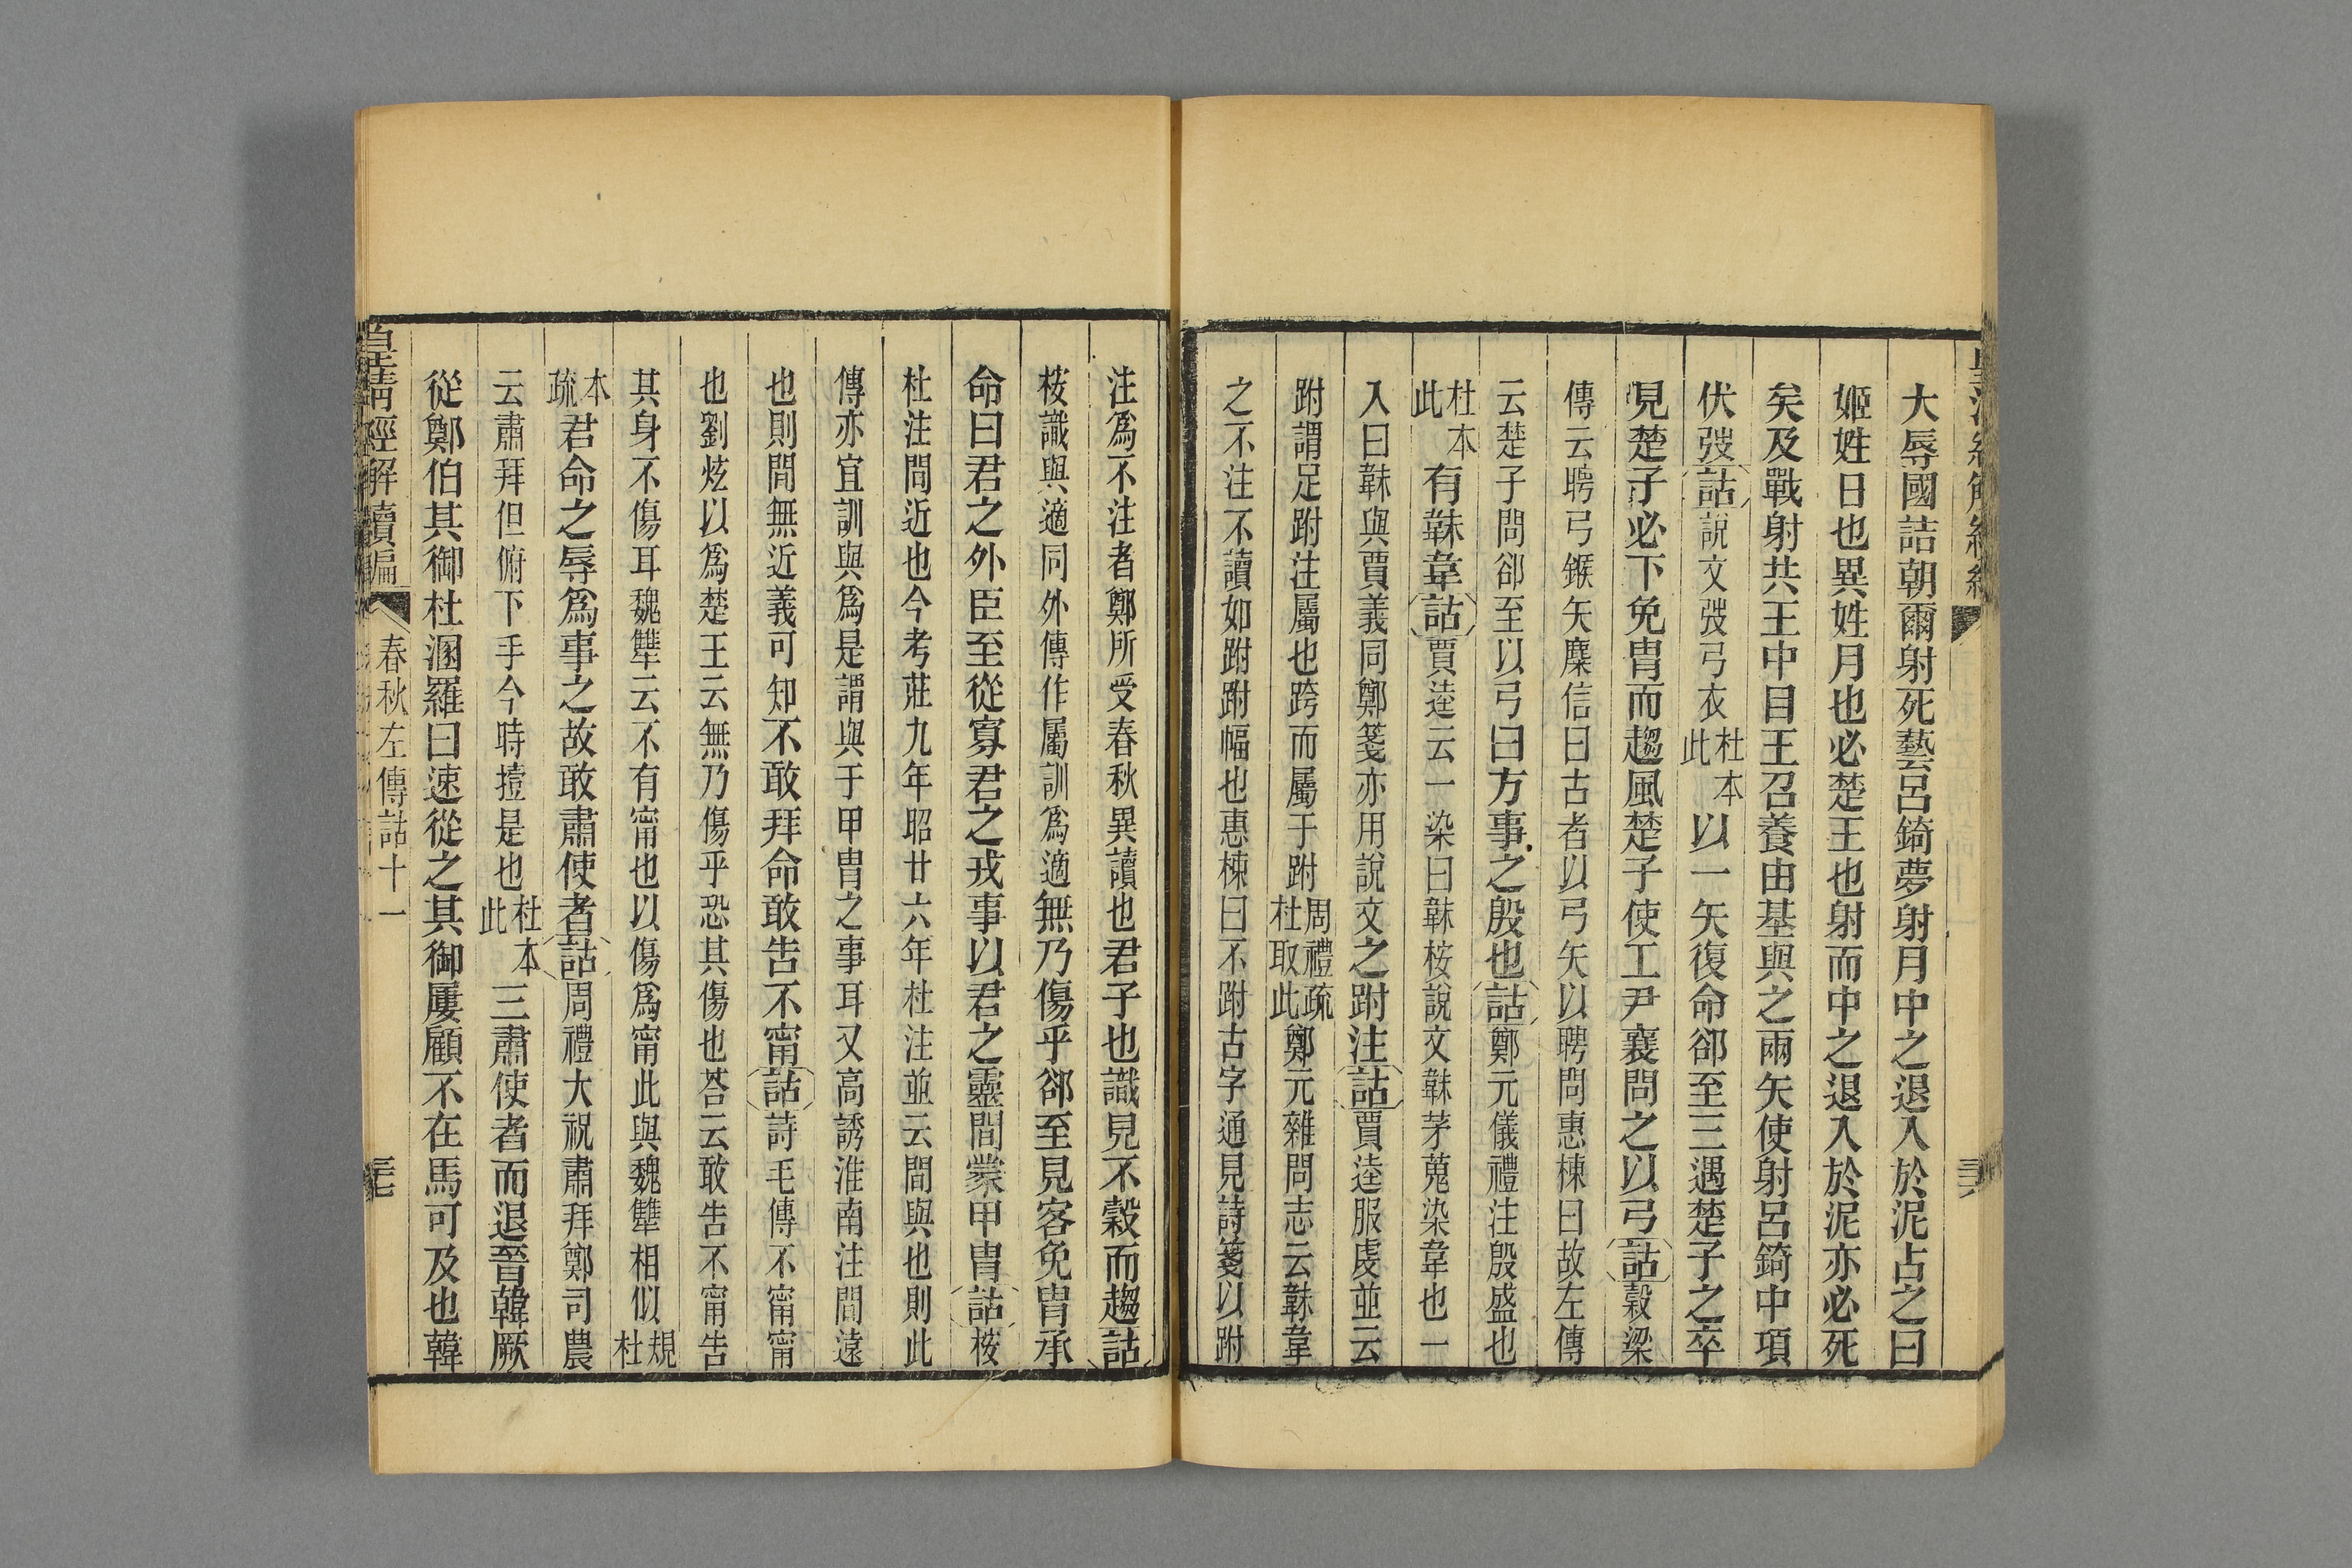 大辱國詰朝爾射死藝呂錡夢射月中之退入於泥占之曰
姬姓日也異姓月也必楚王也射而中之退入於泥亦必死
矣及戰射共王中目王召養由基與之兩矢使射呂錡中項
伏弢詁說文弢弓衣杜本此以一矢復命郤至三遇楚子之卒
見楚子必下免胄而趨風楚子使工尹襄問之以弓詁穀梁
傳云聘弓鍭矢麋信曰古者以弓矢以聘問惠棟曰故左傳
云楚子問郤至以弓曰方事之殷也詁鄭元儀禮注殷盛也
杜本此有韎韋詁賈逵云一染曰韎桉說文韎茅蒐染韋也一
入曰韎與賈義同鄭箋亦用說文之跗注詁賈逵服虔並云
跗謂足跗注屬也跨而屬于跗周禮疏杜取此鄭元雜問志云韎韋
之不注不讀如跗跗幅也惠棟曰不跗古字通見詩箋以跗
注爲不注者鄭所受春秋異讀也君子也識見不穀而趨詁
桉識與適同外傳作屬訓爲適無乃傷乎郤至見客免胄承
命曰君之外臣至從寡君之戎事以君之靈間蒙甲胄詁桉
杜注間近也今考莊九年昭廿六年杜注並云間與也則此
傳亦宜訓與爲是謂與于甲胄之事耳又高誘淮南注間遠
也則間無近義可知不敢拜命敢告不甯詁詩毛傳不甯甯
也劉炫以爲楚王云無乃傷乎恐其傷也荅云敢告不甯告
其身不傷耳魏犫云不有甯也以傷爲甯此與魏犫相似規杜
本疏君命之辱爲事之故敢肅使者詁周禮大祝肅拜鄭司農
云肅拜但俯下手今時擡是也杜本此三肅使者而退晉韓厥
從鄭伯其御杜溷羅曰速從之其御屢顧不在馬可及也韓
皇清經解續編
春秋左傳詁十一